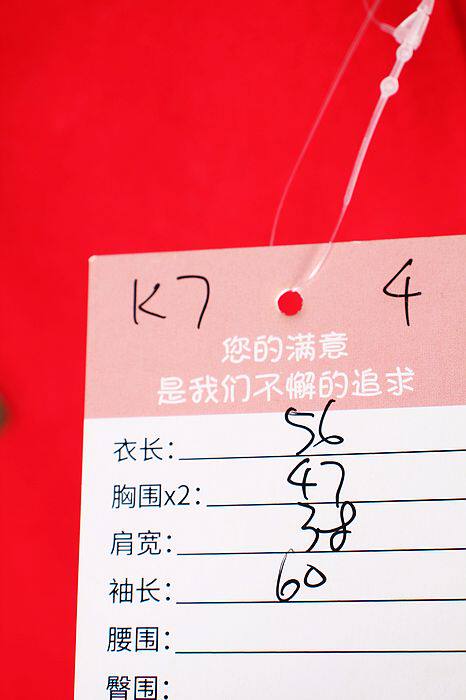 K7 4
您的满意
是我们不懈的追求
衣长: 56
胸围x2: 47
肩宽: 38
袖长: 60
腰围:
臀围: